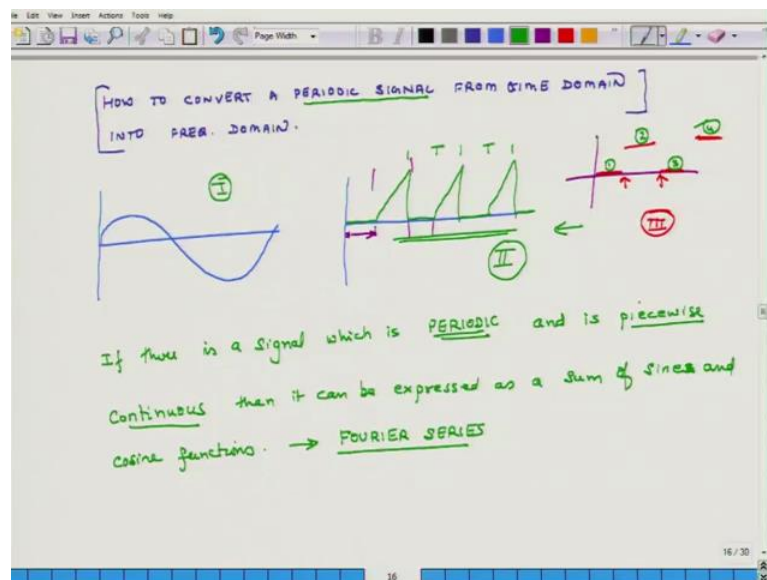 File Edit View Insert Actions Tools Help
Page Width
B I
HOW TO CONVERT A PERIODIC SIGNAL FROM TIME DOMAIN
INTO FREQ. DOMAIN.
I
T T
II
1 2 3 4
III
If there is a signal which is PERIODIC and is piecewise
continuous then it can be expressed as a sum of sines and
cosine functions. → FOURIER SERIES
16 / 30
16